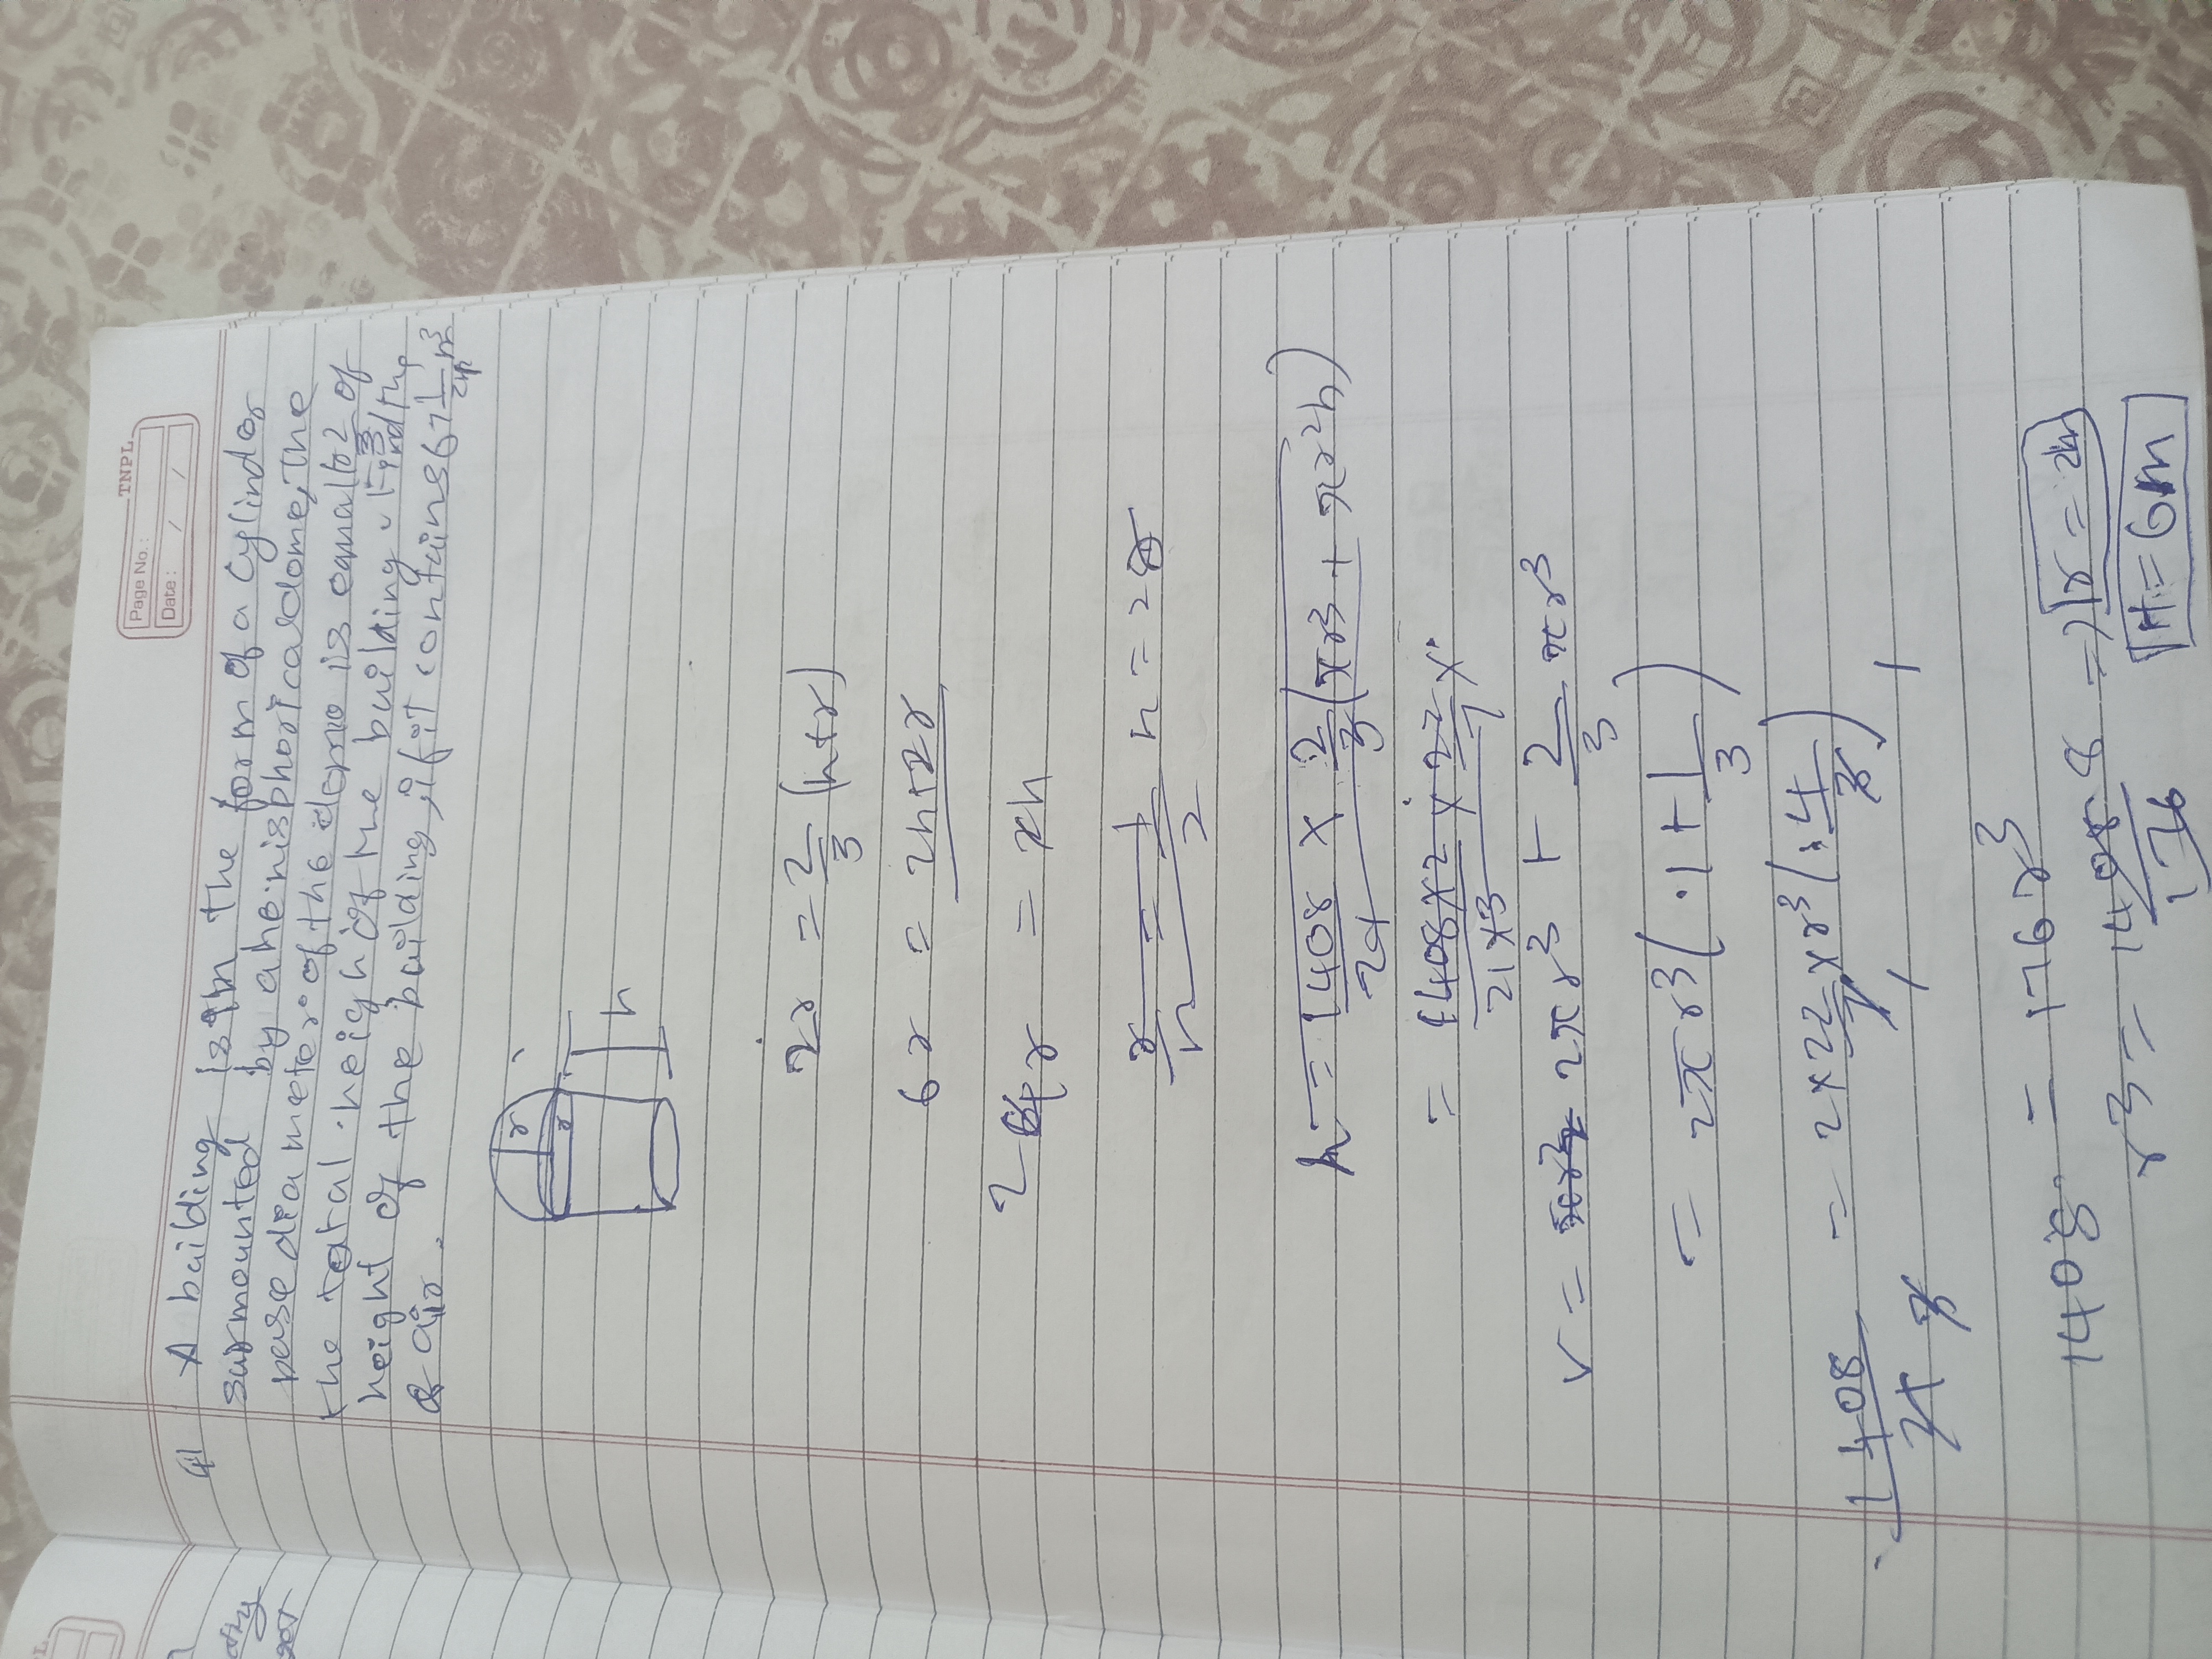 TNPL
Page No. :
Date : / /
Q A building is in the form of a cylinder
surmounted by a hemisphorical dome, The
base diameter of the dome is equal to 2/3 of
the total height of the building. Find the
height of the building, if it contains 67 1/21 m³
of air.
r
r
h
2r = 2/3 (h+r)
6r = 2h+2r
2 4r = 2h
r/h = 1/2 h = 2r
= 1408/21 × 2/3 (πr3 + πr2h)
= 1408×2/21×3 × 22/7 ×
V = 2πr3 + 2/3 πr3
= 2πr3 (1 + 1/3)
1408/21 = 2×22/7 × r3 (4/3)
1408 = 176r3
r3 = 1408/176 8 => r = 2m
H = 6m
TNPL